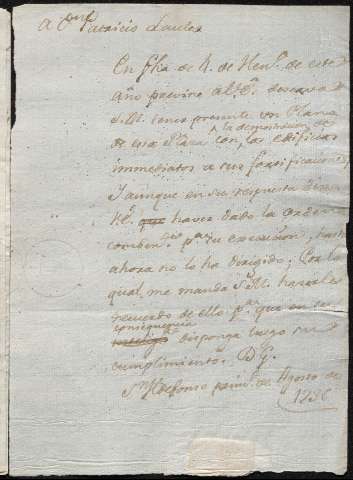 A Dn Patricio Laules
En fha de 4. de Hen.o de este
año previne a V.E. deseava
S.M. tener presente un Plano
a la demostracion de
de esa Plaza con los edificios
immediatos a sus fortificaciones,
Y aunque en su respuesta dice
V.E. que haver dado la orden
combenᵗᵉ pᵃ su execucion, hasta
ahora no lo ha dirigido. Por lo
qual me manda S.M. haga el
recuerdo de ello pᵃ que en su
consequencia
disponga luego su
cumplimiento. D.G.
Sn Ildefonso primº de Agosto de
1736